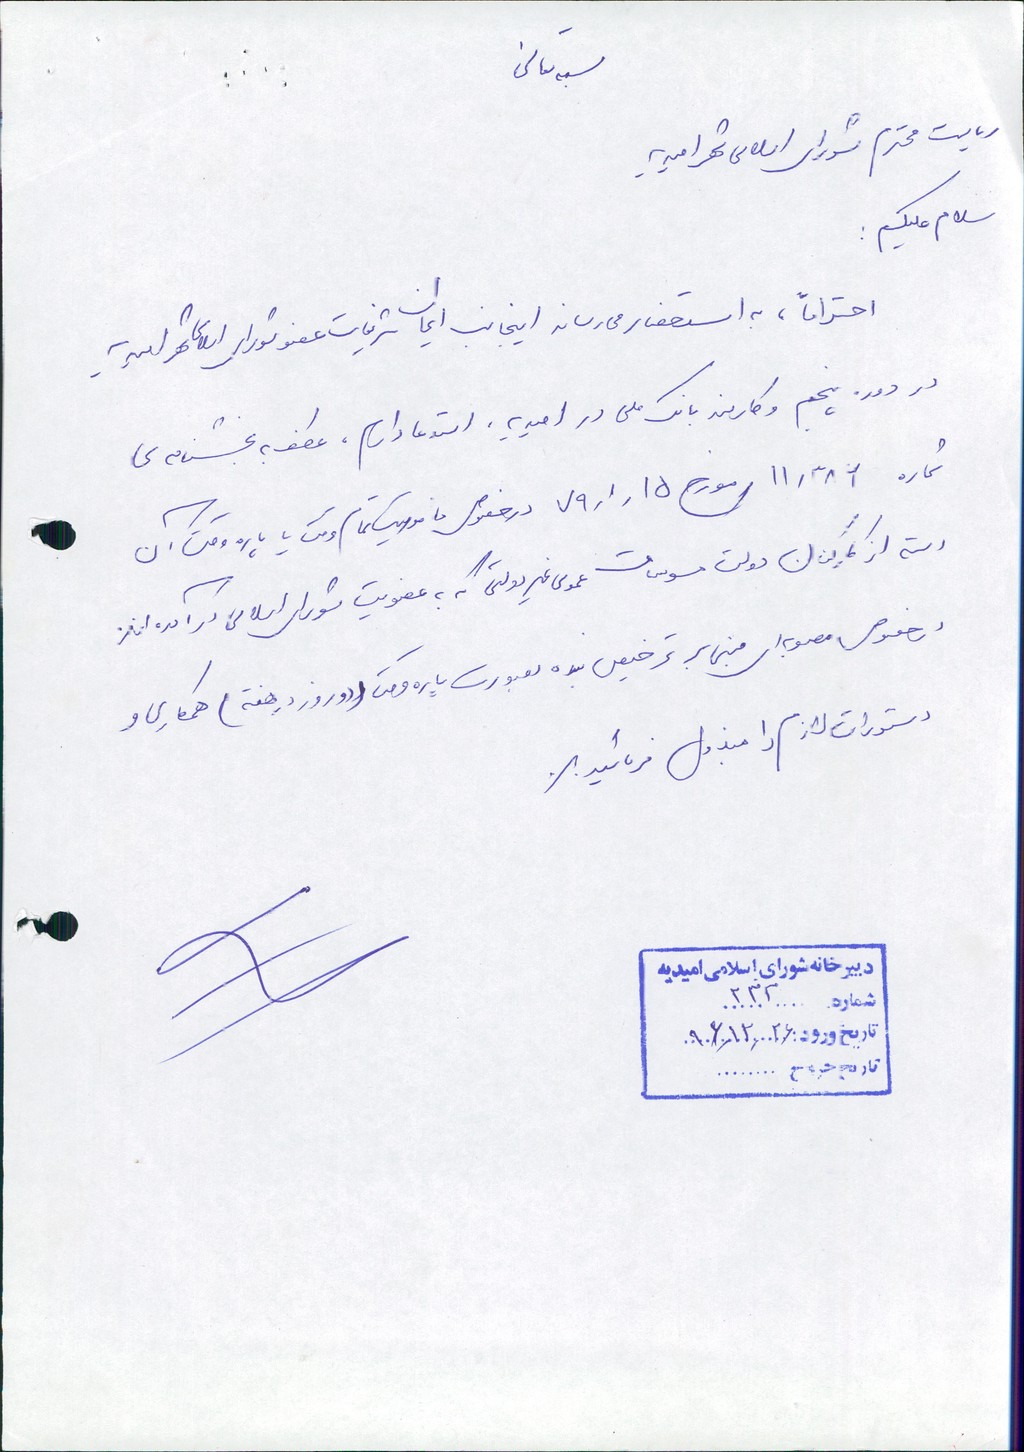 بسمه تعالی
ریاست محترم شورای اسلامی شهر امیدیه
سلام علیکم :
احتراماً ، به استحضار می رساند اینجانب ایمان عضو شورای اسلامی شهر امیدیه
در دوره پنجم و کارمند بانک ملی در امیدیه ، استدعا دارم ، عطف به بخشنامه ی
شماره مورخ ۷۹٫۱٫۱۵ در خصوص ماموریت تمام وقت یا پاره وقت آن
دسته از کارکنان دولت موسسات عمومی غیر دولتی که به عضویت شورای اسلامی در آمده اند
در خصوص مصوبه ای مبنی بر ترخیص بنده بصورت پاره وقت (دو روز در هفته) همکاری و
دستورات لازم را مبذول فرمائید .
دبیرخانه شورای اسلامی امیدیه
شماره ۲۳۲
تاریخ ورود : ۹۶٫۱۲٫۲۶
تاریخ خروج ........